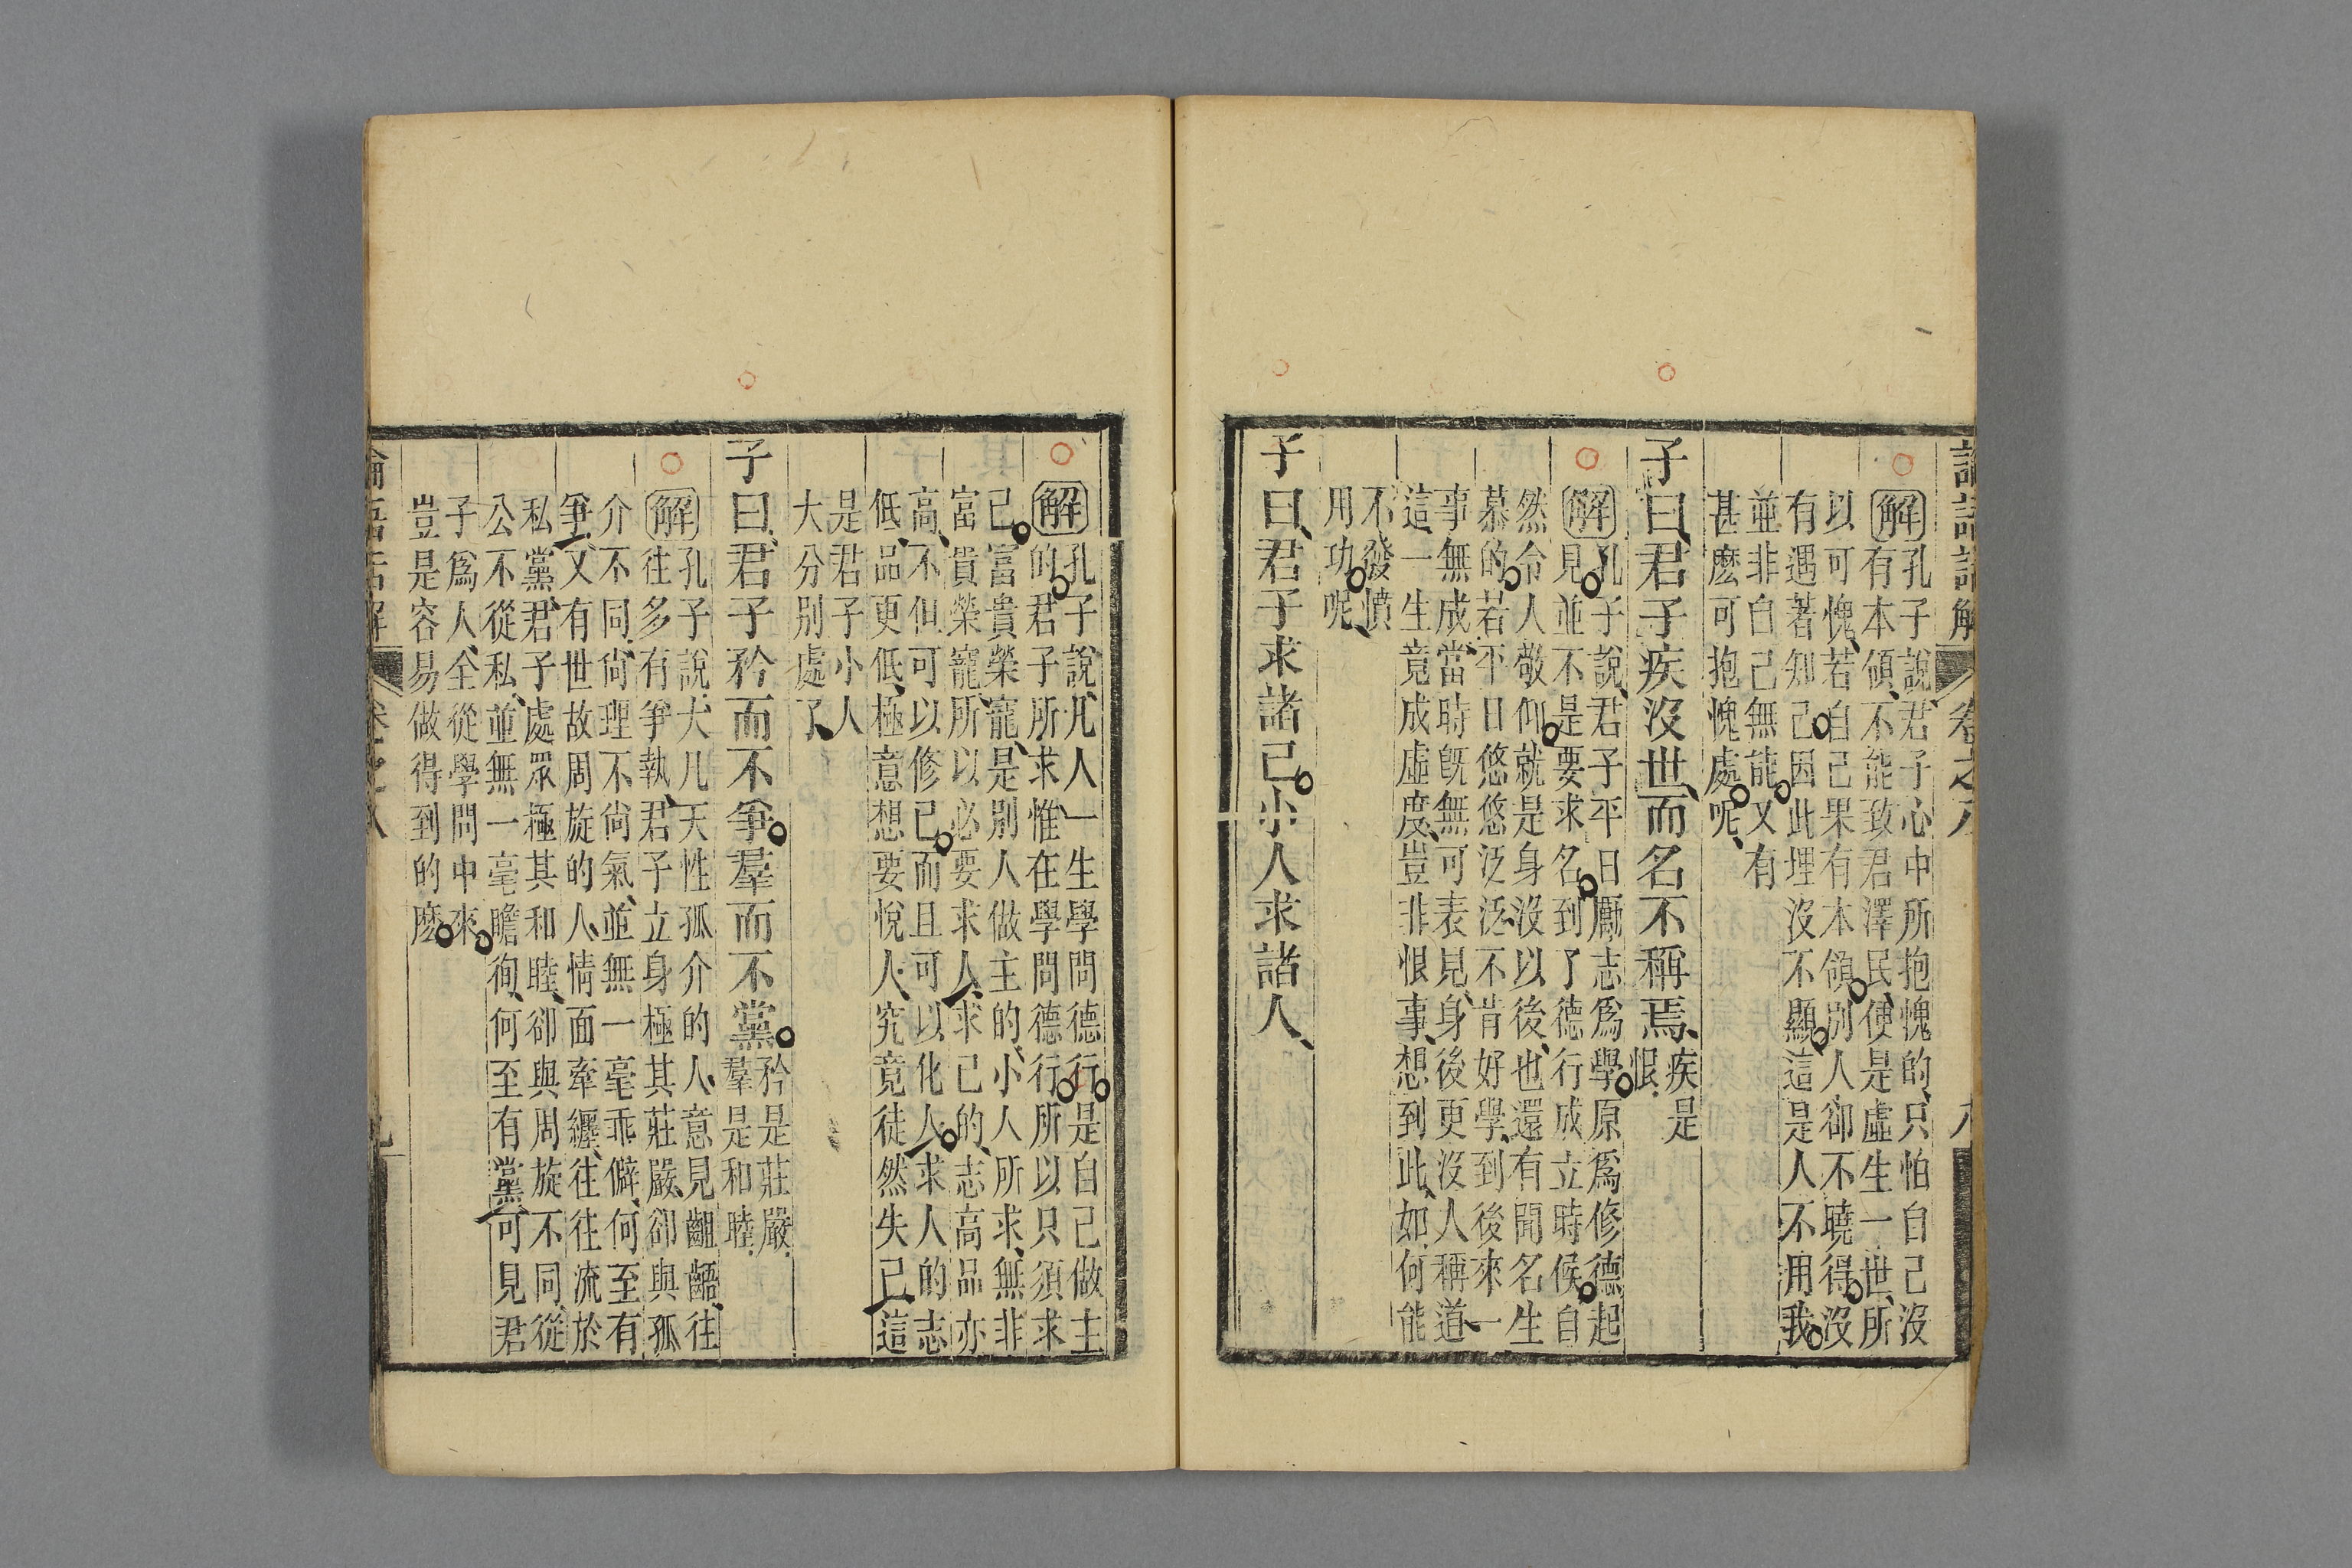 解
孔子說、君子心中所抱愧的、只怕自己沒
有本領、不能致君澤民、便是虛生一世、所
以可愧、若自己果有本領、別人卻不曉得、沒
有遇著知己、因此埋沒不顯、這是人不用我、
並非自己無能、又有
甚麽可抱愧處呢、
子曰、君子疾沒世、而名不稱焉、
疾是
恨
解
孔子說、君子平日厲志爲學、原爲修德起
見、並不是要求名、到了德行成立時候、自
然令人敬仰、就是身沒以後、也還有聞名生
慕的、若平日悠悠泛泛、不肯好學、到後來一
事無成、當時旣無可表見、身後更沒人稱道、
這一生竟成虛度、豈非恨事、想到此、如何能
不發憤
用功呢、
子曰、君子求諸己、小人求諸人、
解
孔子說、凡人一生學問德行、是自己做主
的、君子所求惟在學問德行、所以只須求
己、富貴榮寵、是別人做主的、小人所求、無非
富貴榮寵、所以必要求人、求己的、志高品亦
高、不但可以修己、而且可以化人、求人的志
低、品更低、極意想要悅人、究竟徒然失己、這
是君子小人
大分別處了、
子曰、君子矜而不爭、羣而不黨、
矜是莊嚴、
羣是和睦、
解
孔子說、大凡天性孤介的人、意見齟齬、往
往多有爭執、君子立身極其莊嚴、卻與孤
介不同、尙理不尙氣、並無一毫乖僻、何至有
爭、又有世故周旋的人、情面牽纏、往往流於
私黨、君子處眾極其和睦、卻與周旋不同、從
公不從私、並無一毫瞻徇、何至有黨、可見君
子爲人、全從學問中來、
豈是容易做得到的麽、